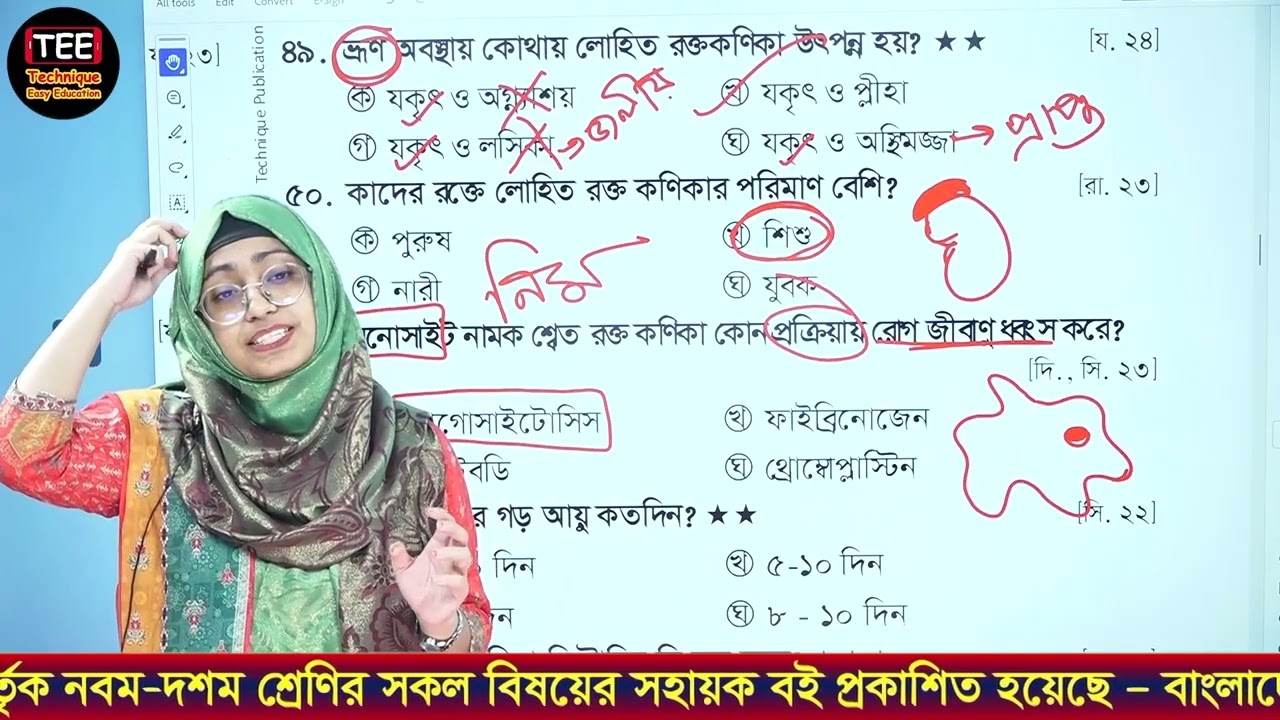 All tools Edit Convert E-Sign
TEE
Technique
Easy Education
Technique Publication
৪৯. ভ্রূণ অবস্থায় কোথায় লোহিত রক্তকণিকা উৎপন্ন হয়? ★★ [য. ২৪]
ক যকৃৎ ও অগ্ন্যাশয় খ যকৃৎ ও প্লীহা
গ যকৃৎ ও লসিকা ঘ যকৃৎ ও অস্থিমজ্জা → প্রাপ্ত
৫০. কাদের রক্তে লোহিত রক্ত কণিকার পরিমাণ বেশি? [রা. ২৩]
ক পুরুষ খ শিশু
গ নারী ঘ যুবক
নোসাইট নামক শ্বেত রক্ত কণিকা কোন প্রক্রিয়ায় রোগ জীবাণু ধ্বংস করে?
[দি., সি. ২৩]
গোসাইটোসিস খ ফাইব্রিনোজেন
বডি ঘ থ্রোম্বোপ্লাস্টিন
র গড় আয়ু কতদিন? ★★ [সি. ২২]
দিন খ ৫-১০ দিন
ন ঘ ৮ - ১০ দিন
র্তৃক নবম-দশম শ্রেণির সকল বিষয়ের সহায়ক বই প্রকাশিত হয়েছে – বাংলাদে